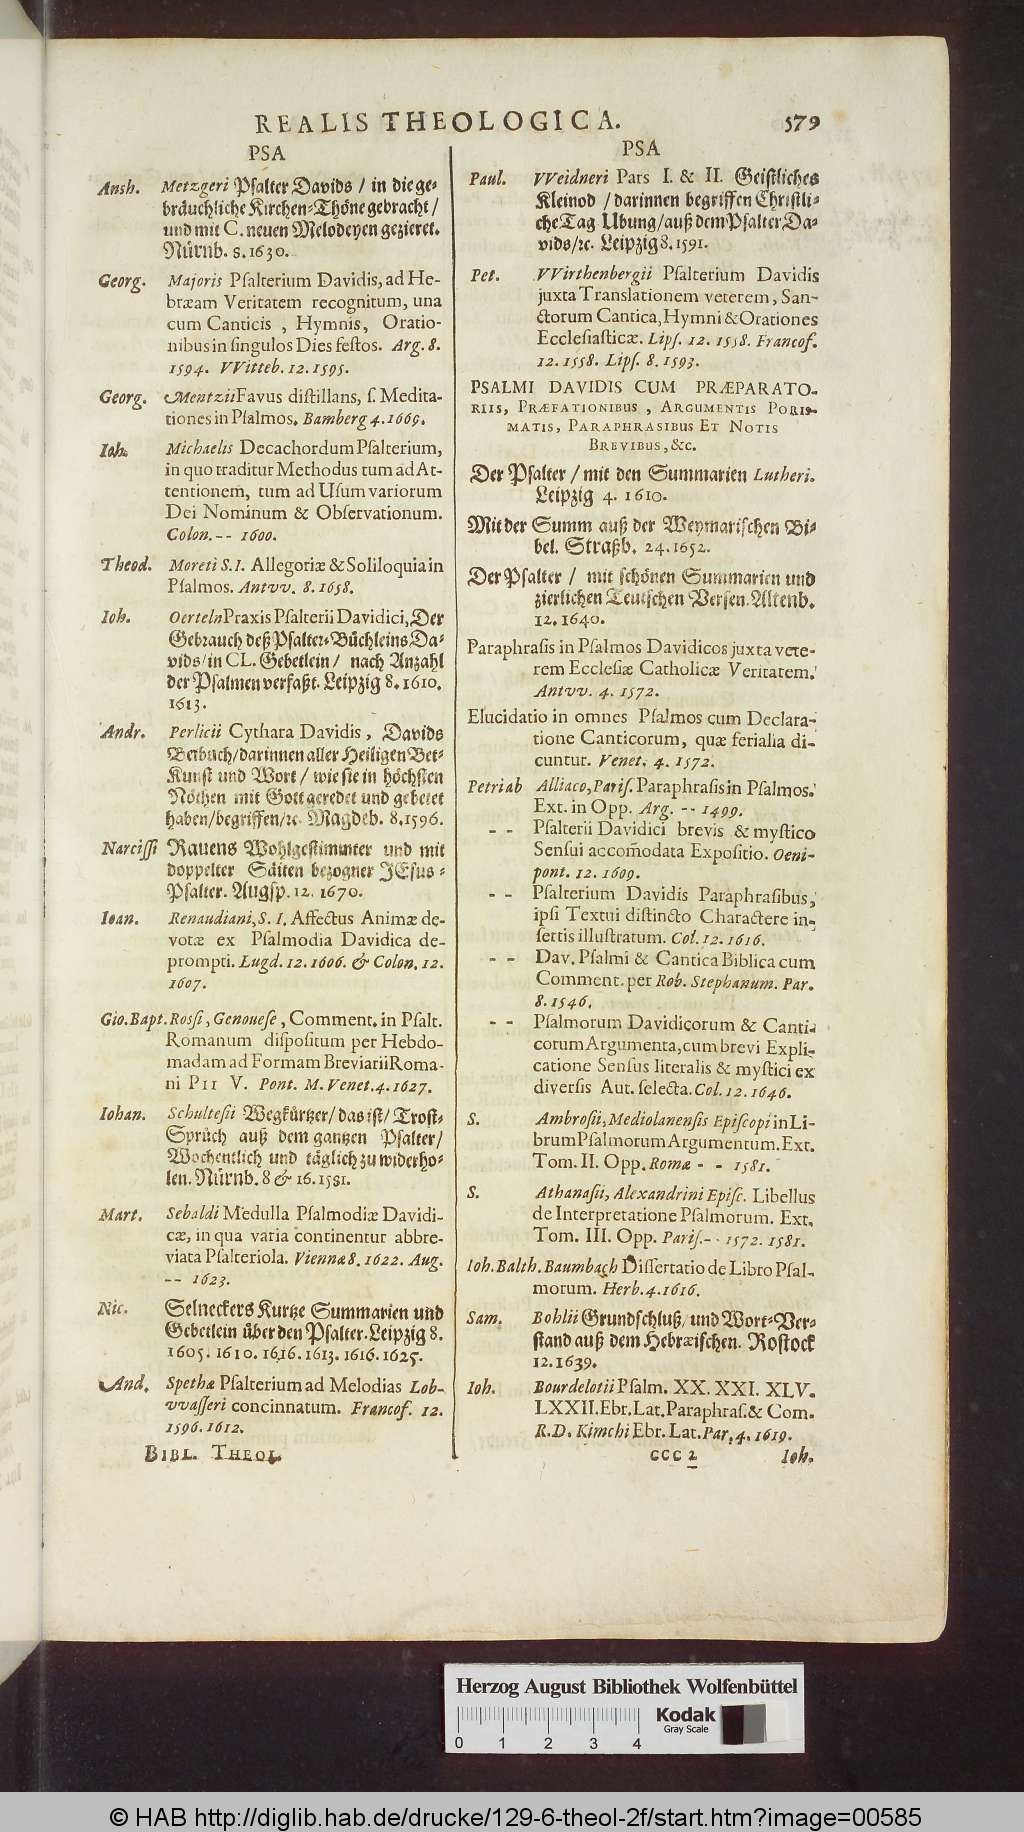 REALIS THEOLOGICA. 579
PSA
Ansh. Metzgeri Psalter Davids / in die ge-
bräuchliche Kirchen-Thöne gebracht /
und mit C. neuen Melodeyen gezieret.
Nürnb. s. 1630.
Georg. Majoris Psalterium Davidis, ad He-
bræam Veritatem recognitum, una
cum Canticis , Hymnis, Oratio-
nibus in singulos Dies festos. Arg. 8.
1594. VVitteb. 12. 1595.
Georg. Mentzii Favus distillans, s. Medita-
tiones in Psalmos. Bamberg 4. 1669.
Ioh. Michaelis Decachordum Psalterium,
in quo traditur Methodus tum ad At-
tentionem, tum ad Usum variorum
Dei Nominum & Observationum.
Colon. -- 1600.
Theod. Moreti S. I. Allegoriæ & Soliloquia in
Psalmos. Antvv. 8. 1658.
Ioh. Oerteln Praxis Psalterii Davidici, Der
Gebrauch deß Psalter-Büchleins Da-
vids / in CL. Gebetlein / nach Anzahl
der Psalmen verfaßt. Leipzig 8. 1610.
1613.
Andr. Perlicii Cythara Davidis , Davids
Betbuch / darinnen aller Heiligen Bet-
Kunst und Wort / wie sie in höchsten
Nöthen mit Gott geredet und gebetet
haben / begriffen / ꝛc. Magdeb. 8. 1596.
Narcissi Rauens Wohlgestimmter und mit
doppelter Säiten bezogner JEsus-
Psalter. Augsp. 12. 1670.
Ioan. Renaudiani, S. I. Affectus Animæ de-
votæ ex Psalmodia Davidica de-
prompti. Lugd. 12. 1606. & Colon. 12.
1607.
Gio. Bapt. Rossi, Genouese, Comment. in Psalt.
Romanum dispositum per Hebdo-
madam ad Formam Breviarii Roma-
ni PII V. Pont. M. Venet. 4. 1627.
Iohan. Schultesii Wegkürtzer / das ist / Trost-
Sprüch auß dem gantzen Psalter /
Wochentlich und täglich zu widerho-
len. Nürnb. 8 & 16. 1581.
Mart. Sebaldi Medulla Psalmodiæ Davidi-
cæ, in qua varia continentur abbre-
viata Psalteriola. Viennæ 8. 1622. Aug.
-- 1623.
Nic. Selneckers Kurtze Summarien und
Gebetlein über den Psalter. Leipzig 8.
1605. 1610. 1616. 1613. 1616. 1625.
And. Spethæ Psalterium ad Melodias Lob-
vvasseri concinnatum. Francof. 12.
1596. 1612.
BIBL. THEOL.
PSA
Paul. VVeidneri Pars I. & II. Geistliches
Kleinod / darinnen begriffen Christli-
che Tag Ubung / auß dem Psalter Da-
vids / ꝛc. Leipzig 8. 1591.
Pet. VVirthenbergii Psalterium Davidis
juxta Translationem veterem, San-
ctorum Cantica, Hymni & Orationes
Ecclesiasticæ. Lips. 12. 1558. Francof.
12. 1558. Lips. 8. 1593.
PSALMI DAVIDIS CUM PRÆPARATO-
RIIS, PRÆFATIONIBUS , ARGUMENTIS PORIS-
MATIS, PARAPHRASIBUS ET NOTIS
BREVIBUS, &c.
Der Psalter / mit den Summarien Lutheri.
Leipzig 4. 1610.
Mit der Summ auß der Weymarischen Bi-
bel. Straßb. 24. 1652.
Der Psalter / mit schönen Summarien und
zierlichen Teutschen Versen. Altenb.
12. 1640.
Paraphrasis in Psalmos Davidicos juxta vete-
rem Ecclesiæ Catholicæ Veritatem.
Antvv. 4. 1572.
Elucidatio in omnes Psalmos cum Declara-
tione Canticorum, quæ ferialia di-
cuntur. Venet. 4. 1572.
Petri ab Alliaco, Paris. Paraphrasis in Psalmos.
Ext. in Opp. Arg. -- 1499.
-- Psalterii Davidici brevis & mystico
Sensui accom̃odata Expositio. Oeni-
pont. 12. 1609.
-- Psalterium Davidis Paraphrasibus,
ipsi Textui distincto Charactere in-
sertis illustratum. Col. 12. 1616.
-- Dav. Psalmi & Cantica Biblica cum
Comment. per Rob. Stephanum. Par.
8. 1546.
-- Psalmorum Davidicorum & Canti-
corum Argumenta, cum brevi Expli-
catione Sensus literalis & mystici ex
diversis Aut. selecta. Col. 12. 1646.
S. Ambrosii, Mediolanensis Episcopi in Li-
brum Psalmorum Argumentum. Ext.
Tom. II. Opp. Romæ - - 1581.
S. Athanasii, Alexandrini Episc. Libellus
de Interpretatione Psalmorum. Ext.
Tom. III. Opp. Paris. -- 1572. 1581.
Ioh. Balth. Baumbach Dissertatio de Libro Psal-
morum. Herb. 4. 1616.
Sam. Bohlii Grundschluß / und Wort-Ver-
stand auß dem Hebræischen. Rostock
12. 1639.
Ioh. Bourdelotii Psalm. XX. XXI. XLV.
LXXII. Ebr. Lat. Paraphras. & Com.
R. D. Kimchi Ebr. Lat. Par. 4. 1619.
CCC 2 Ioh.
Herzog August Bibliothek Wolfenbüttel
Kodak
Gray Scale
0 1 2 3 4
© HAB http://diglib.hab.de/drucke/129-6-theol-2f/start.htm?image=00585